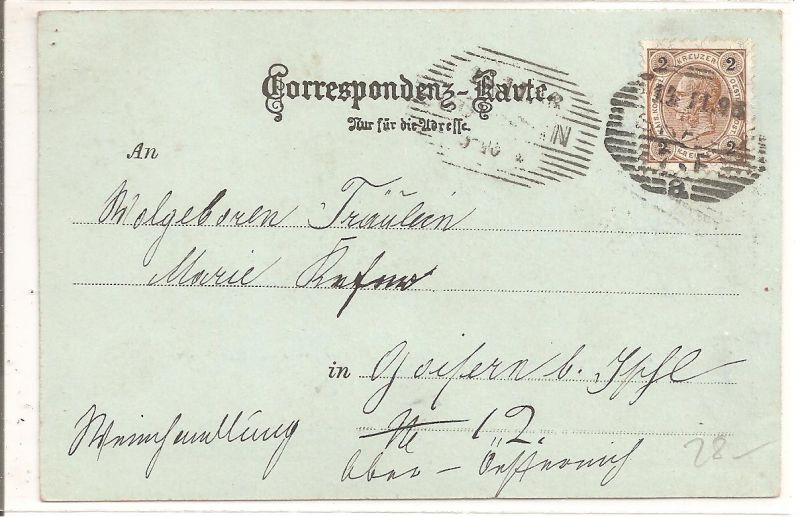 Correspondenz-Karte.
Nur für die Adresse.
2 KREUZER 2
2 2
N
a
An
Wolgeboren Fräulein
Marie
in Goisern b. Ischl
Weinhandlung № 12.
Ober-Österreich
28-